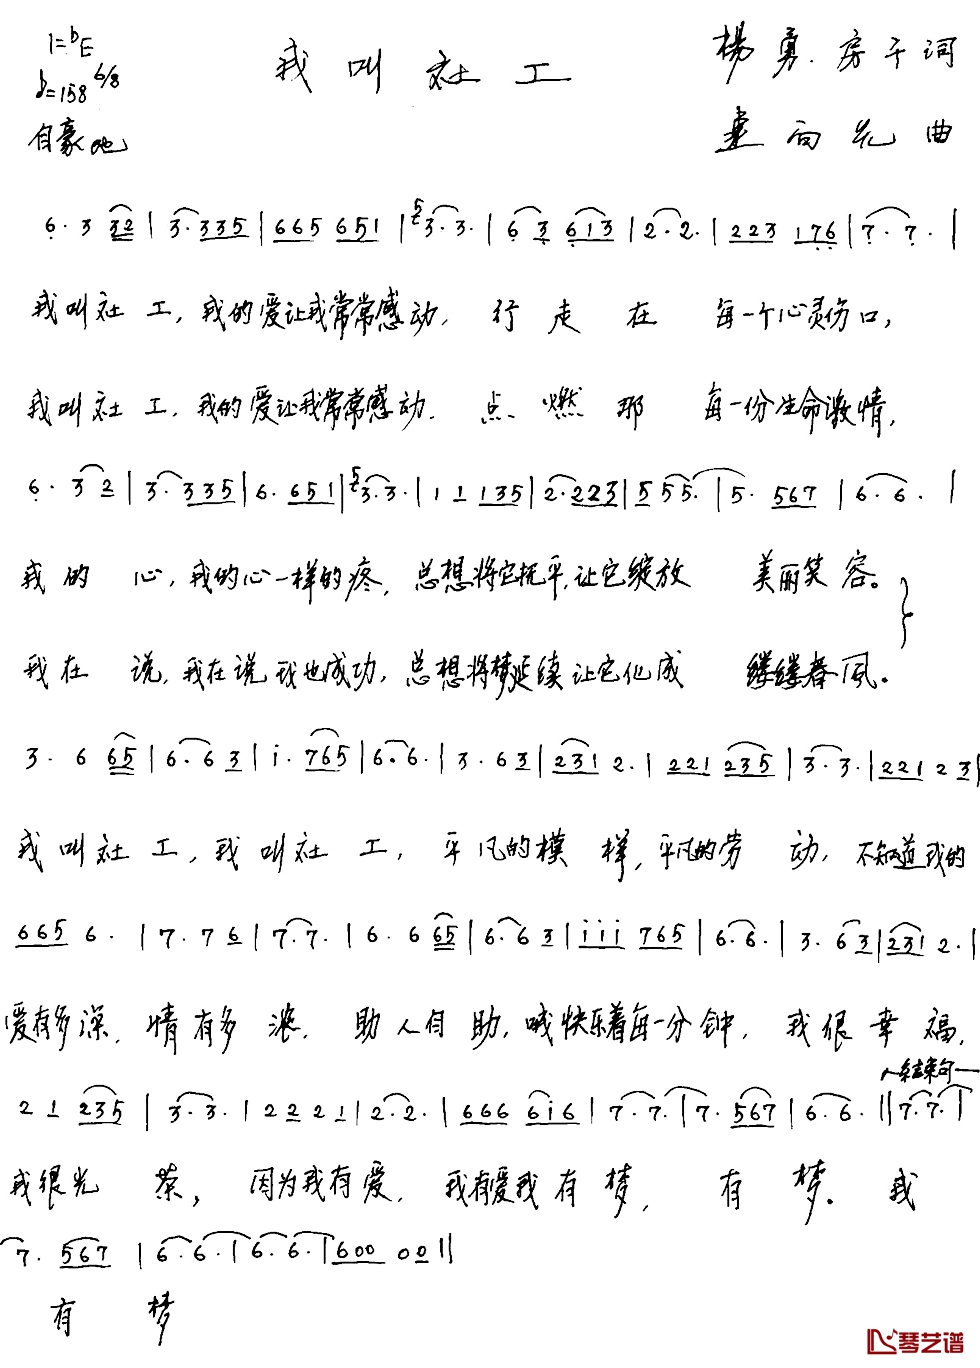 1=♭E
我叫社工
楊勇.房千词
♩.=158 6/8
自豪地
向光曲
6. 3 32 | 3. 335 | 665 651 | 3. 3. | 63 613 | 2. 2. | 223 176 | 7. 7. |
我叫社工，我的爱让我常常感动，行走在每一个心灵伤口，
我叫社工，我的爱让我常常感动.点燃那每一份生命激情，
6. 3 2 | 3. 335 | 6. 651 | 3. 3. | 1 1 135 | 2. 223 | 5 5 5. | 5. 567 | 6. 6. |
我的心，我的心一样的疼，总想将它抚平，让它绽放美丽笑容。
我在说，我在说我也成功，总想将梦延续让它化成缕缕春风。
3. 6 65 | 6. 6 3 | i. 765 | 6. 6. | 3. 6 3 | 231 2. | 221 235 | 3. 3. | 221 2 3 |
我叫社工，我叫社工，平凡的模样，平凡的劳动，不知道我的
665 6. | 7. 7 6 | 7. 7. | 6. 6 65 | 6. 6 3 | iii 765 | 6. 6. | 3. 6 3 | 231 2. |
爱有多深，情有多浓，助人自助，喊快乐着每一分钟，我很幸福，
结束句
2 1 235 | 3. 3. | 2 2 2 1 | 2. 2. | 666 6i6 | 7. 7. | 7. 567 | 6. 6. || 7. 7. |
我很光荣，因为我有爱，我有爱我有梦，有梦。我
7. 567 | 6. 6. | 6. 6. | 600 00 ||
有梦
琴艺谱